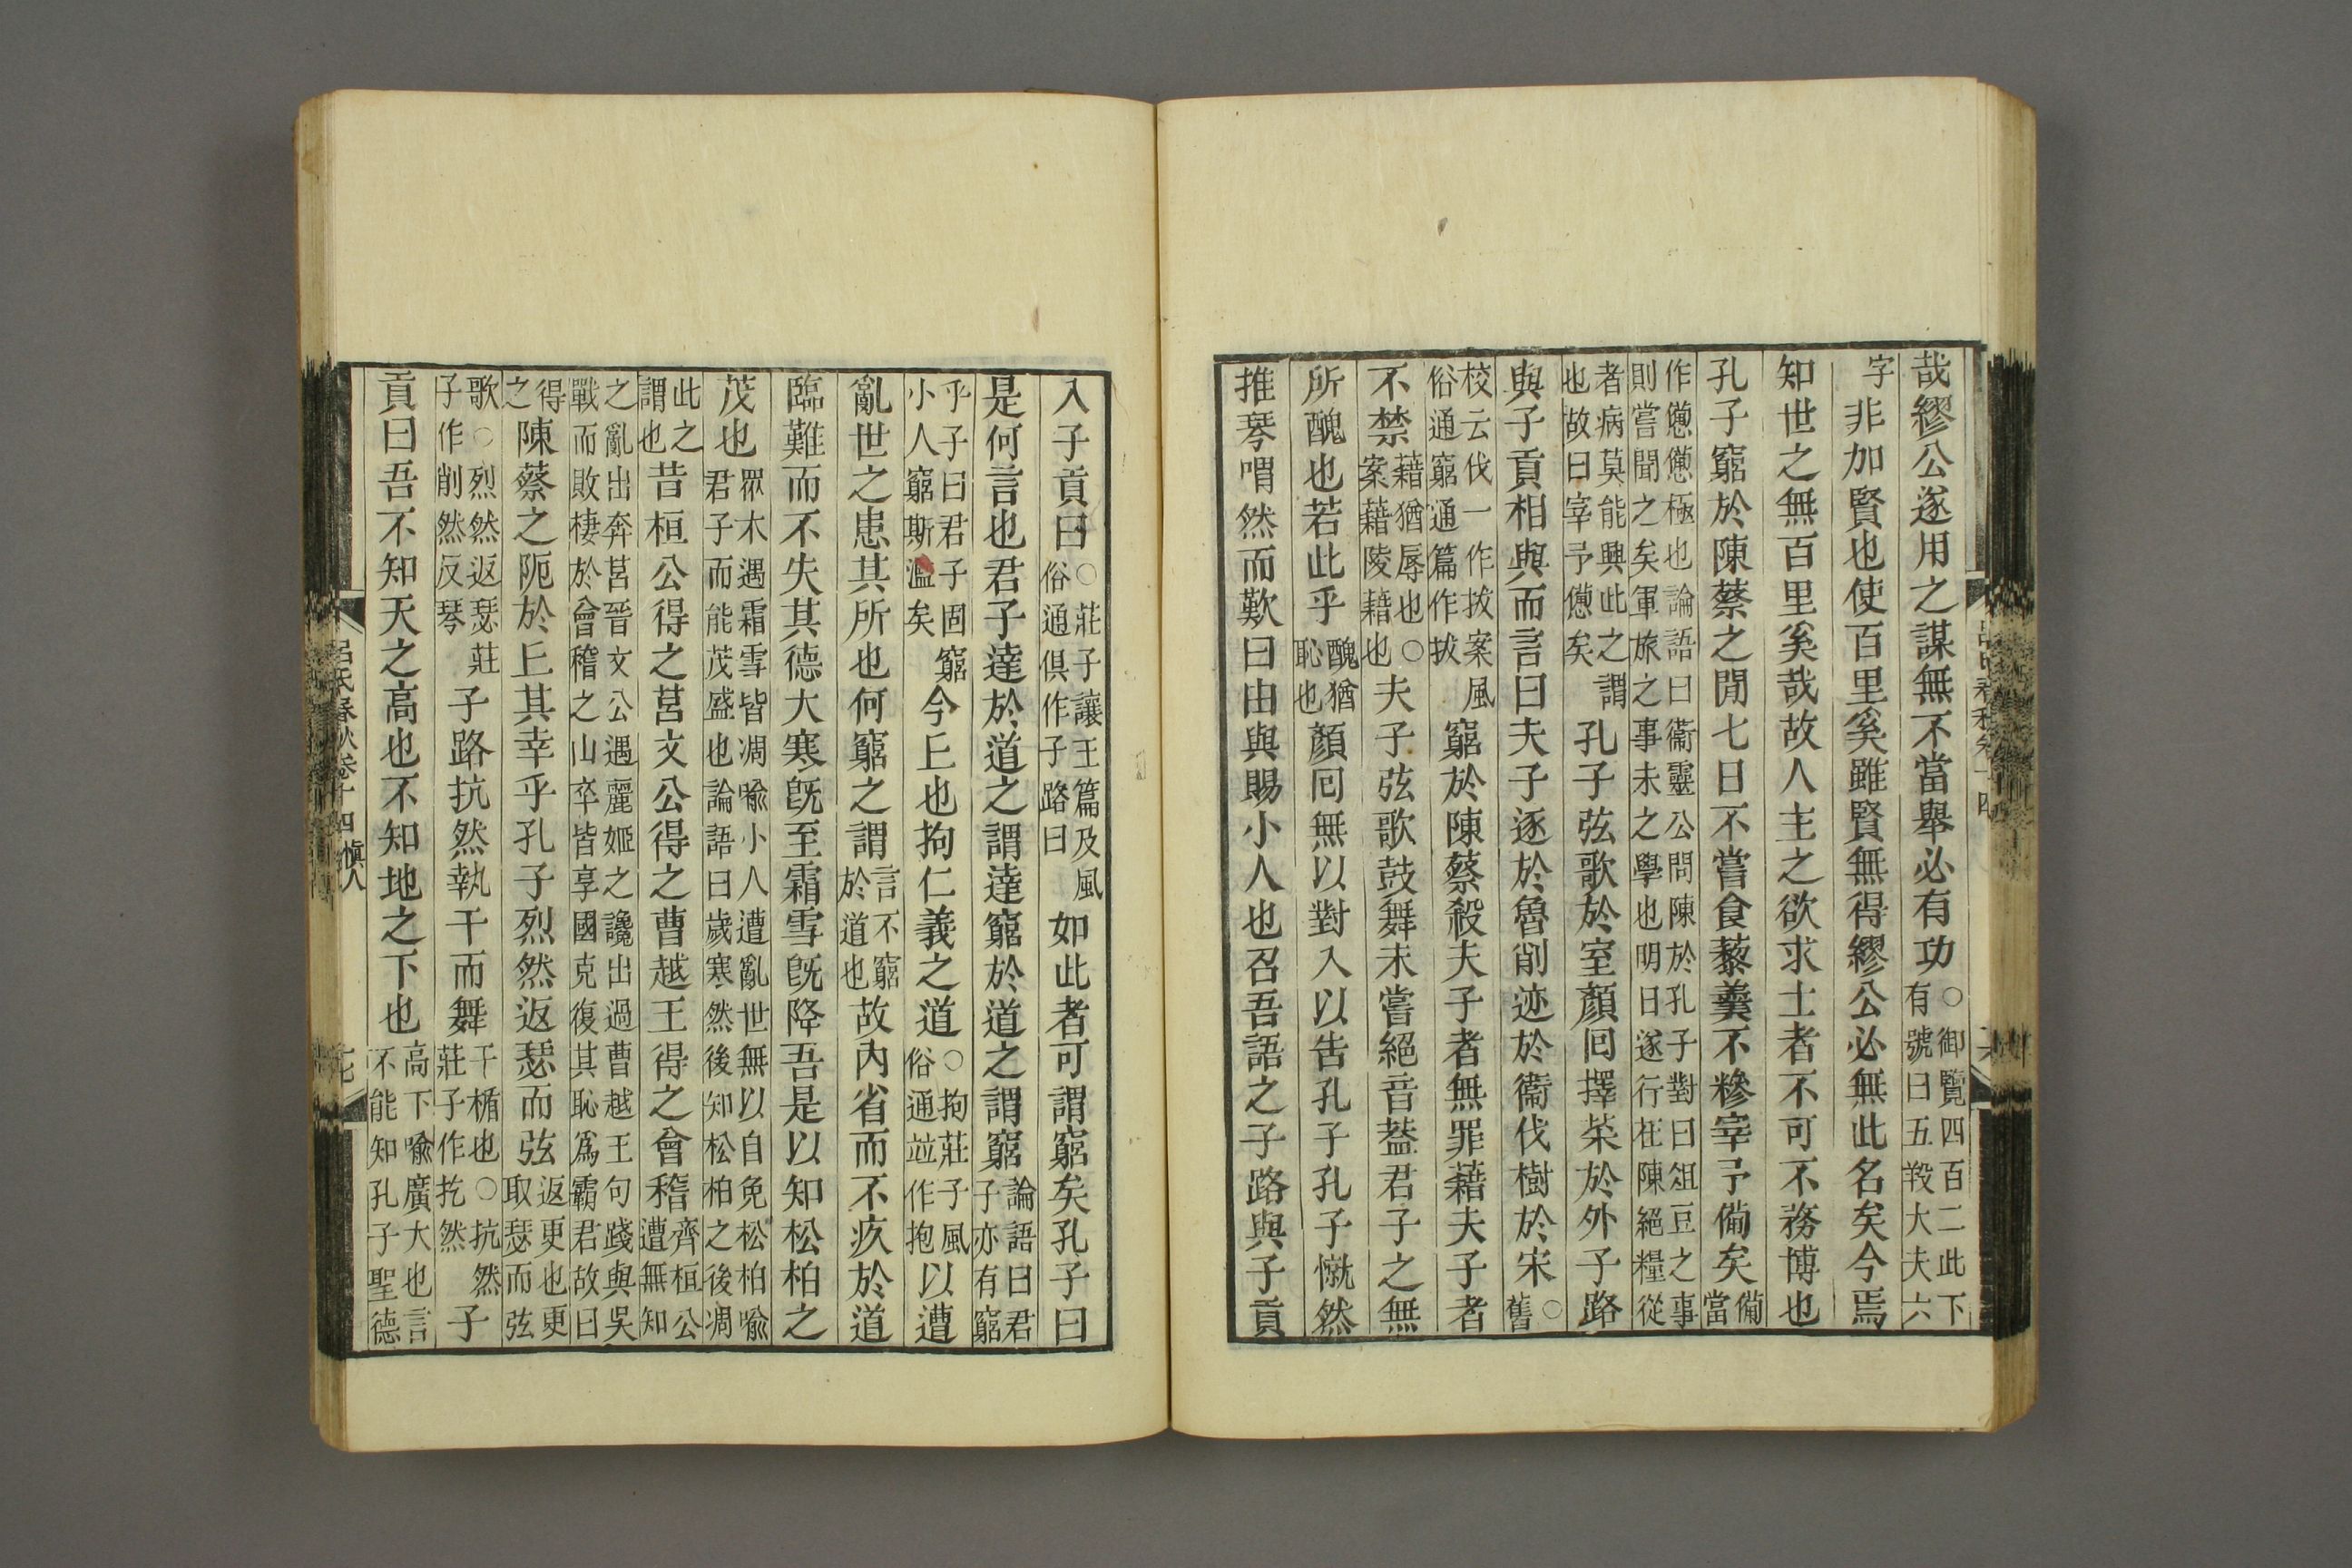 哉繆公遂用之謀無不當舉必有功○御覽四百二此下有號曰五羖大夫六
字非加賢也使百里奚雖賢無得繆公必無此名矣今焉
知世之無百里奚哉故人主之欲求士者不可不務博也
孔子窮於陳蔡之閒七日不嘗食藜羹不糝宰予備矣備當
作憊憊極也論語曰衞靈公問陳於孔子對曰俎豆之事則嘗聞之矣軍旅之事未之學也明日遂行在陳絕糧從
者病莫能興此之謂也故曰宰予憊矣孔子弦歌於室顏回擇菜於外子路
與子貢相與而言曰夫子逐於魯削迹於衞伐樹於宋○舊
校云伐一作拔案風俗通窮通篇作拔窮於陳蔡殺夫子者無罪藉夫子者
不禁藉猶辱也○案藉陵藉也夫子弦歌鼓舞未嘗絕音蓋君子之無
所醜也若此乎醜猶恥也顏回無以對入以告孔子孔子憱然
推琴喟然而歎曰由與賜小人也召吾語之子路與子貢
入子貢曰○莊子讓王篇及風俗通俱作子路曰如此者可謂窮矣孔子曰
是何言也君子達於道之謂達窮於道之謂窮論語曰君子亦有窮
乎子曰君子固窮小人窮斯濫矣今丘也拘仁義之道○拘莊子風俗通竝作抱以遭
亂世之患其所也何窮之謂言不窮於道也故內省而不疚於道
臨難而不失其德大寒旣至霜雪旣降吾是以知松柏之
茂也眾木遇霜雪皆凋喻小人遭亂世無以自免松柏喻君子而能茂盛也論語曰歲寒然後知松柏之後凋
此之謂也昔桓公得之莒文公得之曹越王得之會稽齊桓公遭無知
之亂出奔莒晉文公遇麗姬之讒出過曹越王句踐與吳戰而敗棲於會稽之山卒皆享國克復其恥為霸君故曰
得之陳蔡之阨於丘其幸乎孔子烈然返瑟而弦返更也更取瑟而弦
歌○烈然返瑟莊子作削然反琴子路抗然執干而舞干楯也○抗然莊子作扢然子
貢曰吾不知天之高也不知地之下也高下喻廣大也言不能知孔子聖德
呂氏春秋卷十四 慎人